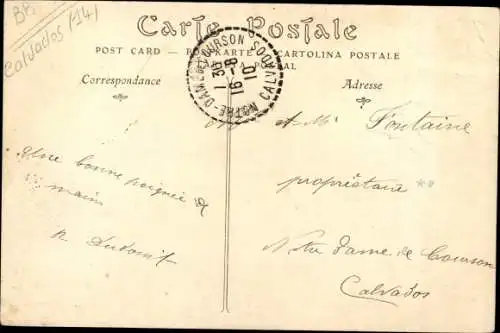 BP.
Calvados (14)
Carte Postale
POST CARD — POSTKARTE — CARTOLINA POSTALE
POSTAL
Correspondance
Adresse
NOTRE-DAME-DE-COURSON CALVADOS
16 -8
10
A Mr Fontaine
propriétaire
Notre Dame de Courson
Calvados
Une bonne poignée de
main